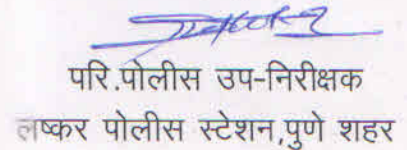 परि.पोलीस उप-निरीक्षक
लष्कर पोलीस स्टेशन,पुणे शहर